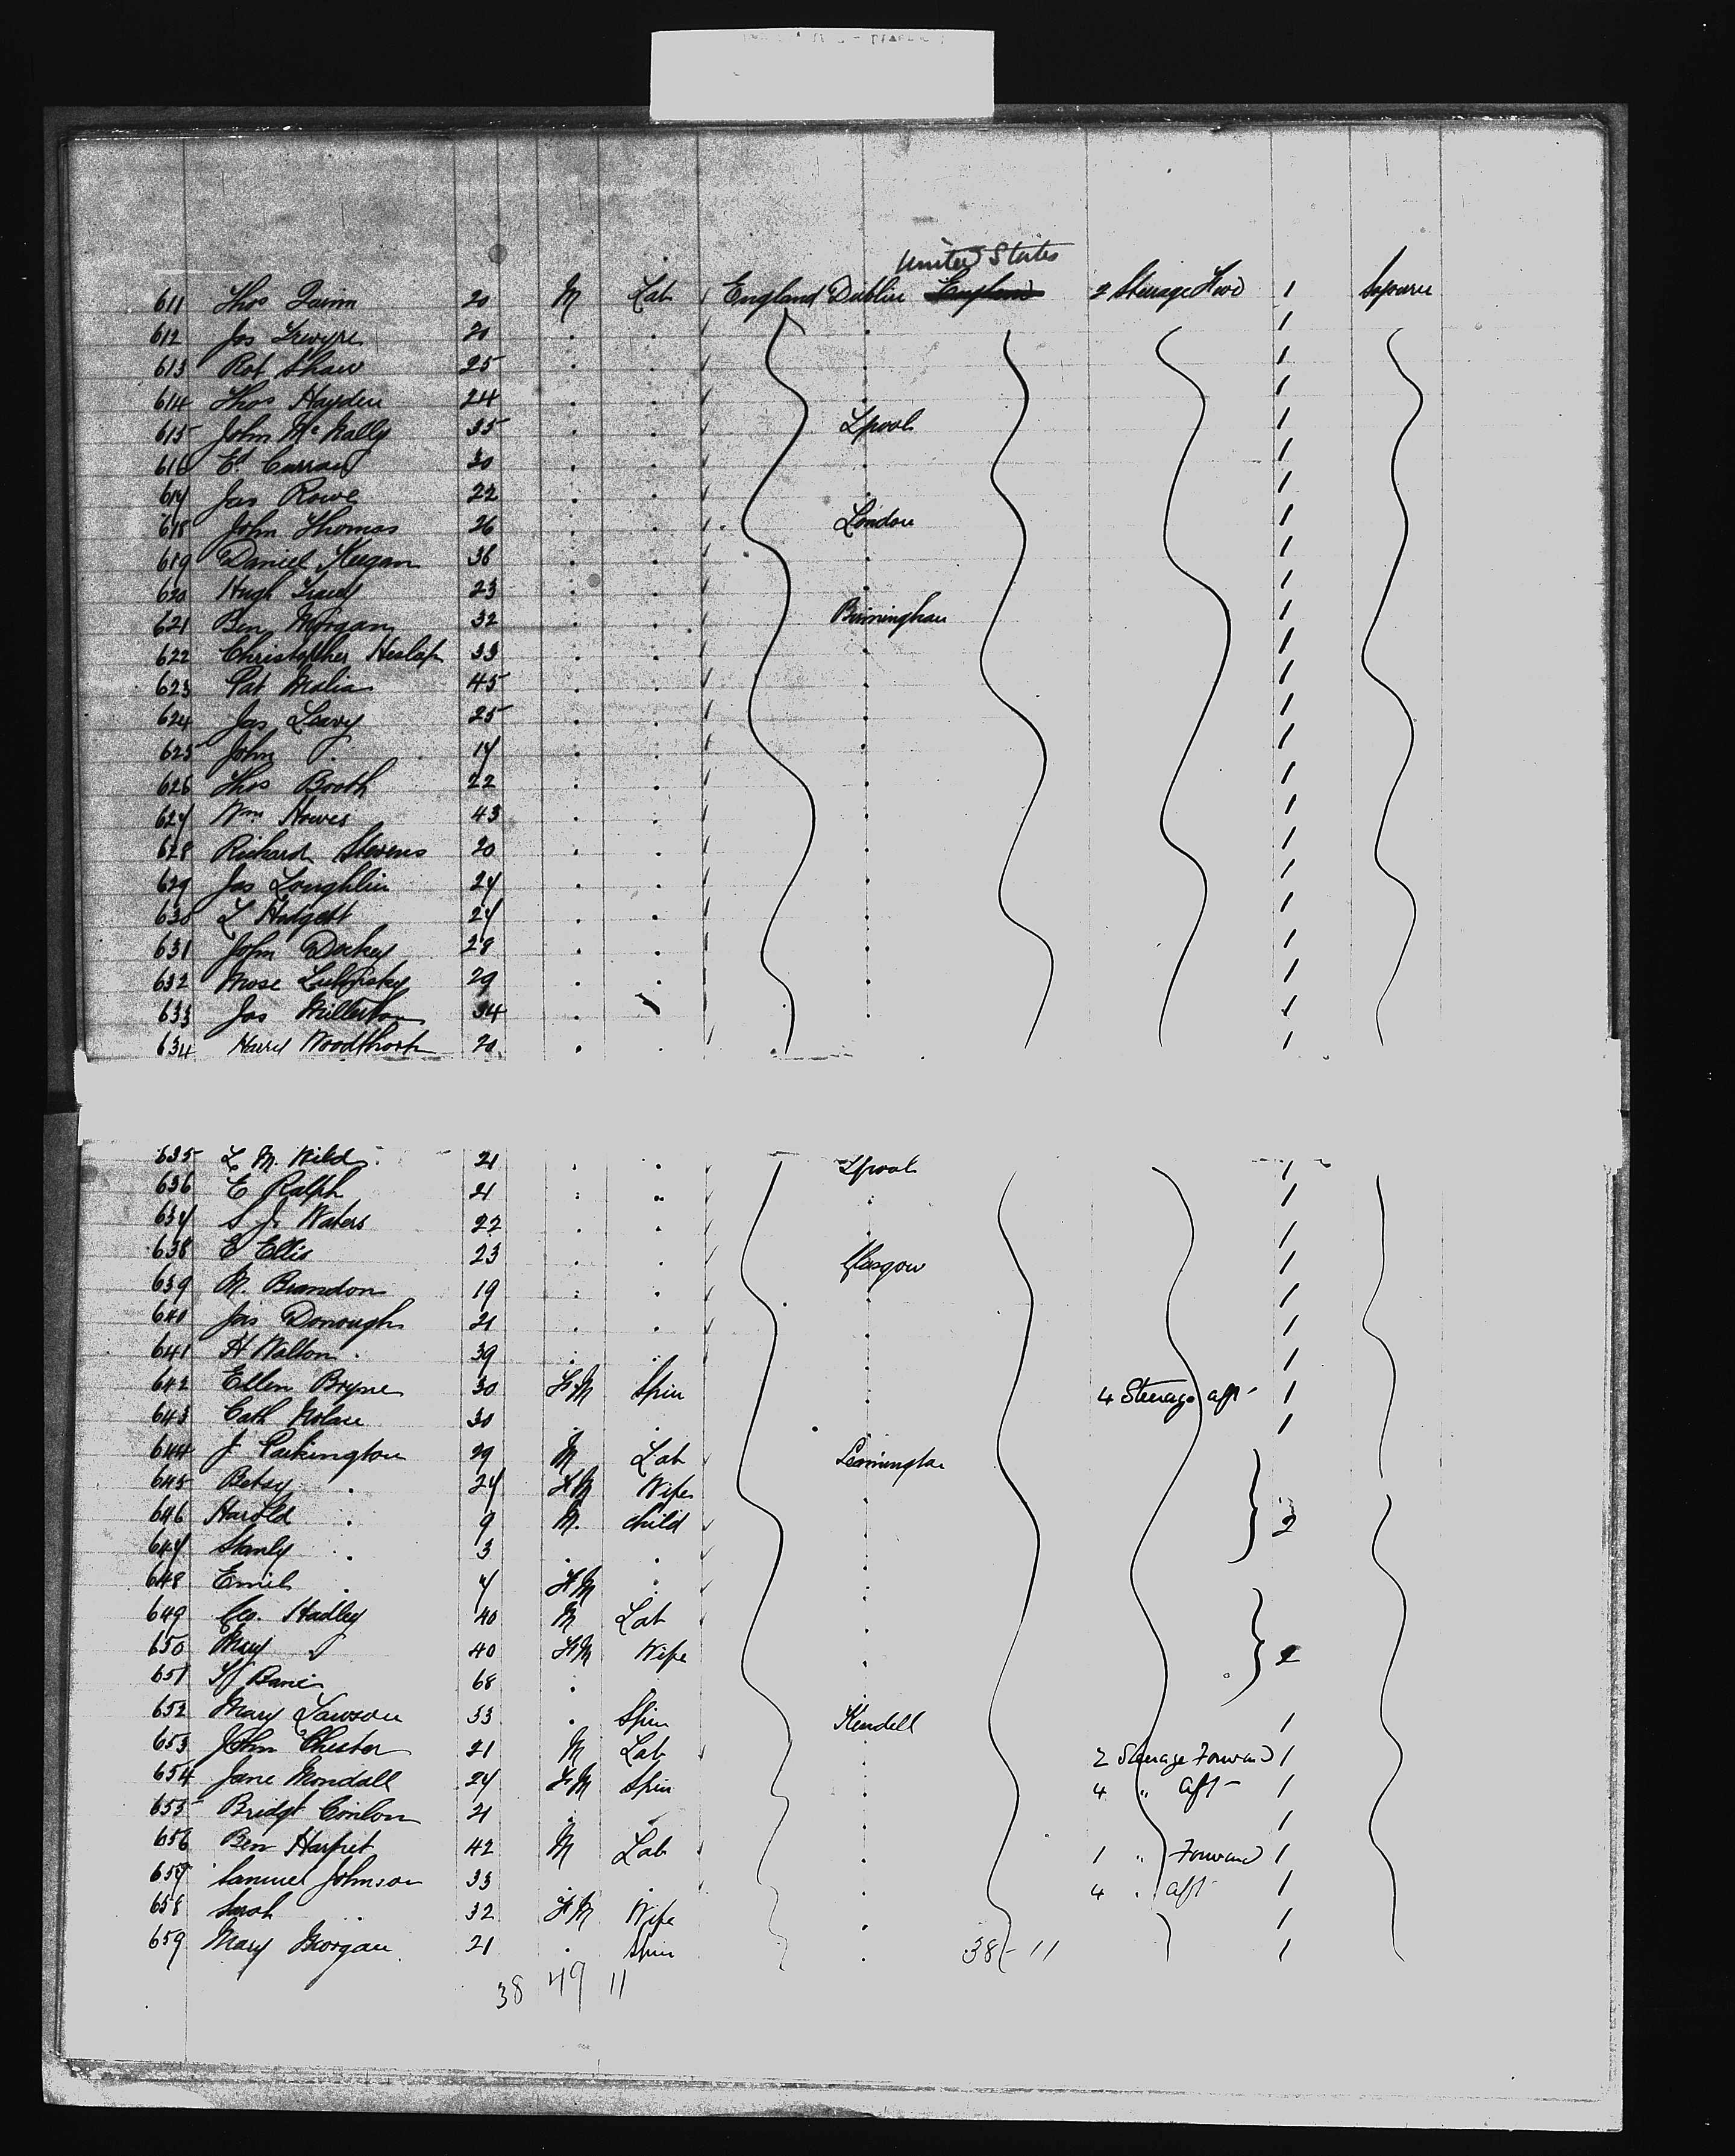 United States
611 Thos Quinn 20 M Lab England Dublin England 2 Steerage Fwd 1 Sojourn
612 Jas 20 . . . 1
613 Rob Shaw 25 . . . 1
614 Thos Hayden 24 . . . 1
615 John McNally 35 . . Lpool 1
616 Ed Curran 30 . . . 1
617 Jas Rowe 22 . . . 1
618 John Thomas 26 . . London 1
619 Daniel Keegan 36 . . . 1
620 Hugh 23 . . . 1
621 Ben Morgan 32 . . Birmingham 1
622 Christopher Heslop 33 . . . 1
623 Pat Malia 45 . . . 1
624 Jas Leavy 25 . . . 1
625 John . 17 . . . 1
626 Thos Booth 22 . . . 1
627 Wm Howes 43 . . . 1
628 Richard Stevens 20 . . . 1
629 Jas Loughlin 27 . . . 1
630 L Hodgett 27 . . . 1
631 John 28 . . . 1
632 Mose 29 . . . 1
633 Jas 34 . . 1
634 Woodthorp 20 . . 1
635 L M. Wild 21 . . Lpool 1
636 E Ralph 21 . . . 1
637 S J. Waters 22 . . . 1
638 E Ellis 23 . . Glasgow 1
639 M. Brandon 19 . . . 1
640 Jas Donough 21 . . . 1
641 H Walton 39 . . . 1
642 Ellen Bryne 30 FM Spin . 4 Steerage aft 1
643 Cath Nolan 30 . . . 1
644 J Parkington 29 M Lab Leamington
645 Betsy . 27 FM Wife .
646 Harold . 9 M. child . 2
647 Stanly . 3 . . .
648 . 7 FM . .
649 Geo. Hadley 40 M Lab .
650 Mary 40 FM Wife . 2
651 68 .
652 Mary Lawson 33 . Spin Kendell 1
653 John Chester 21 M Lab . 2 Steerage Forward 1
654 Jane Mondall 27 FM Spin . 4 " aft 1
655 Bridgt Conlon 21 . . . 1
656 Ben 42 M Lab . 1 " Forward 1
657 Samuel Johnson 33 . . . 4 . aft 1
658 Sarah 32 FM Wife . 1
659 Mary Morgan 21 . Spin . 38 - 11 1
38 49 11